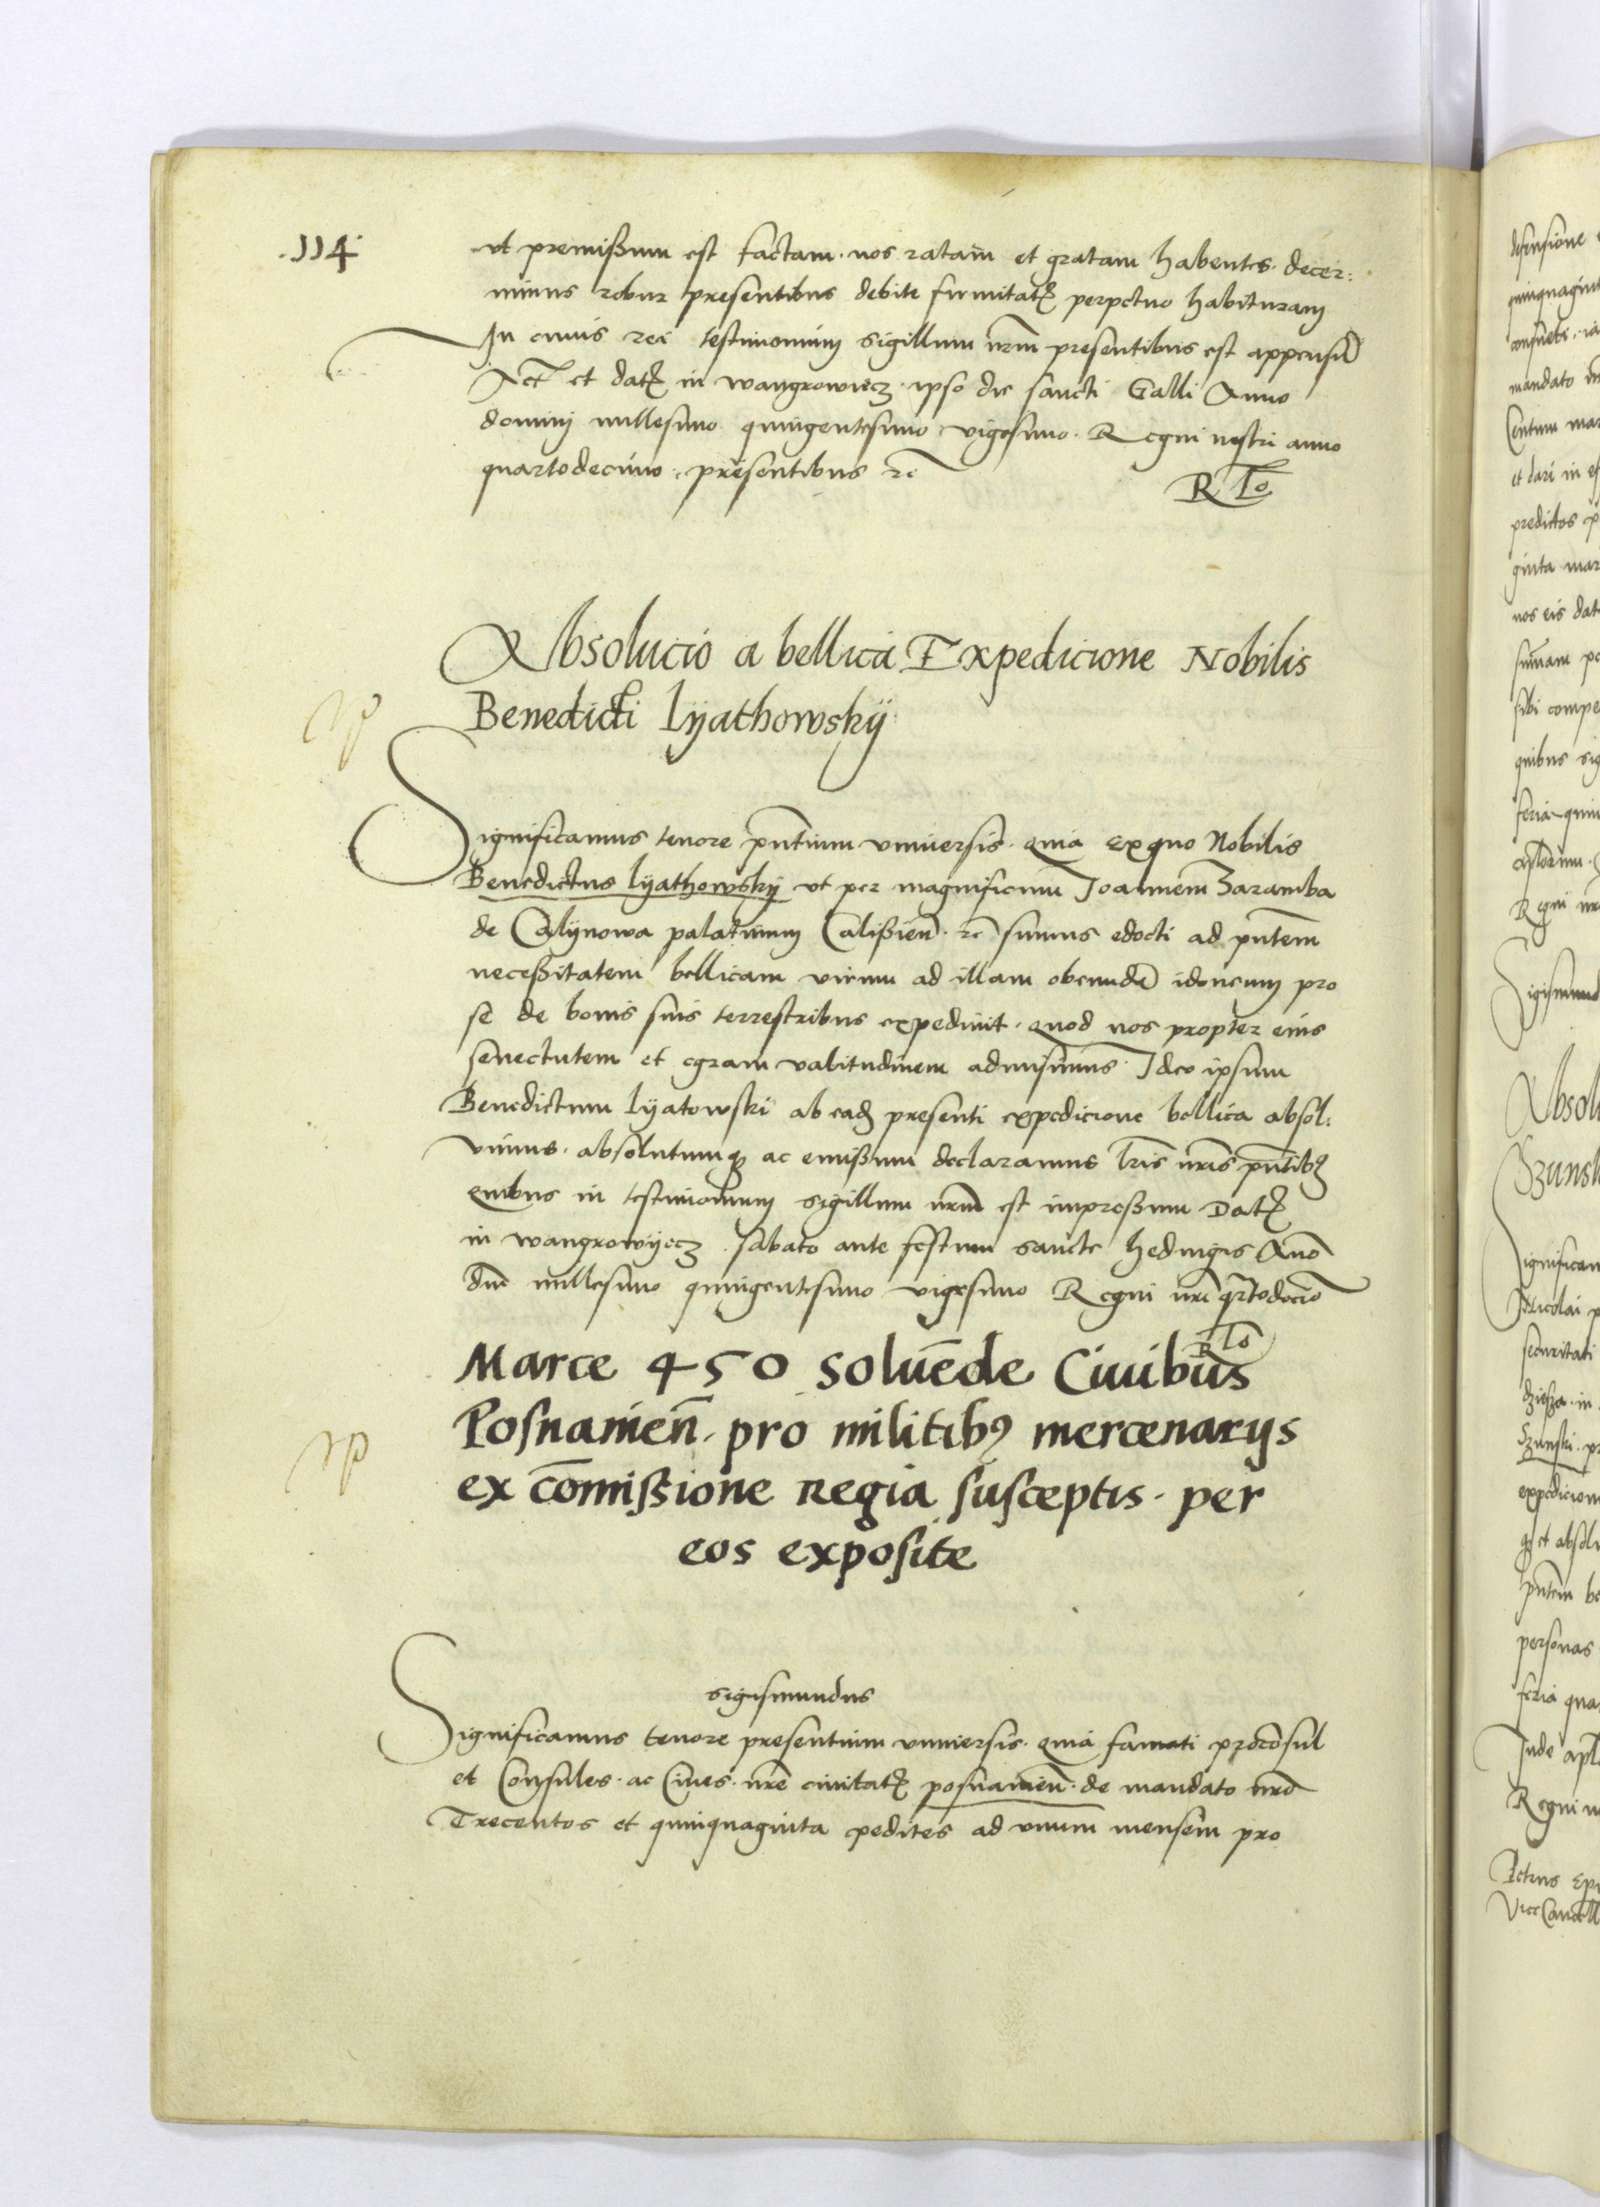 .114.
ut premißum est factam. nos ratam et gratam habentes. decer:
nimus robur presentibus debite firmitatꝭ perpetuo habituram
In cuius rei testimonium sigillum nrm̄ presentibus est appensū
Act̄ et datꝭ in wangrowiecz. ipso die sancti Galli Anno
dominij millesimo quingentesimo vigesimo. Regni nostri anno
quartodecimo. presentibus rc̄
R Lo
Absolucio a bellica Expedicione Nobilis
Benedicti Lÿathowskÿ
Significamus tenore pn̄tium vniuersis. quia exquo Nobilis
Benedictus lÿathowskÿ vt per magnificum Joannem Zaramba
de Calÿnowa palatinum Calißien̄. rc̄ sumus edocti ad pn̄tem
neceßitatem bellicam virum ad illam obeundā idoneum pro
se de bonis suis terrestribus expediuit. quod nos propter eius
senectutem et egram valitudinem admisimus. Ideo ipsum
Benedictum lÿatowski ab eadꝫ presenti expedicione bellica absol:
uimus. absolutumqꝫ ac emißum declaramus lr̄is nr̄is pn̄tibꝫ
quibus in testimonium sigillum nrm̄ est impreßum Datꝭ
in wangrowÿecz. sabato ante festum sancte hedwigis Ano̅
dni̅ millesimo quingentesimo vigesimo Regni nri̅ qr̄todecio̅
R Lo
Marce 450 solue̅de Ciuibus
Posnanien̅. pro militibꝰ mercenarys
ex co̅mißione Regia susceptis. per
eos exposite
sigismundus
Significamus tenore presentium vniuersis. quia famati procōsul
et Consules. ac Ciues. nre̅ ciuitatꝭ posnanien̅. de mandato nro̅
Trecentos et quinquaginta pedites ad vnum mensem pro